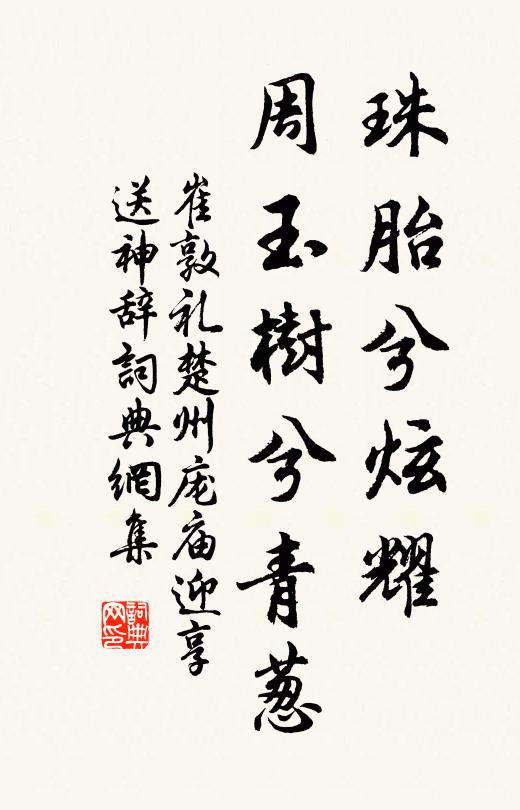 珠胎兮炫耀
周玉樹兮青葱
崔敦礼楚州庞庙迎享
送神辞詞典網集
詞典網印